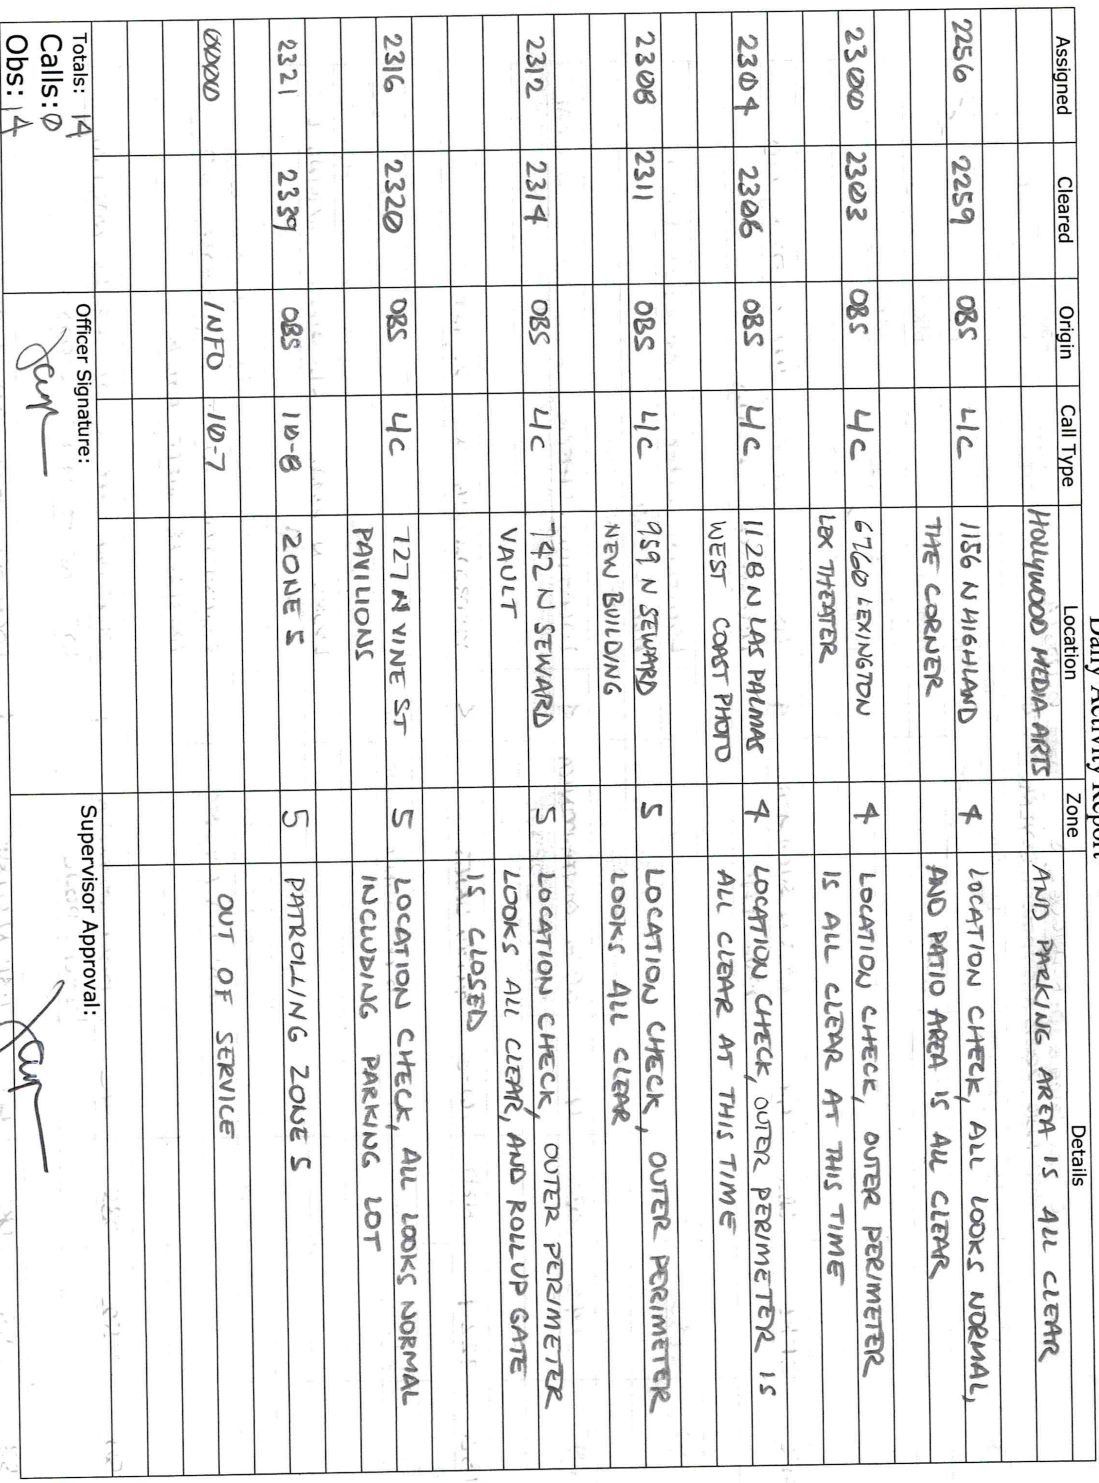 Daily Activity Report
Assigned Cleared Origin Call Type Location Zone Details
HOLLYWOOD MEDIA ARTS AND PARKING AREA IS ALL CLEAR
2256 2259 OBS L/C 1156 N HIGHLAND 4 LOCATION CHECK, ALL LOOKS NORMAL,
THE CORNER AND PATIO AREA IS ALL CLEAR
2300 2303 OBS L/C 6760 LEXINGTON 4 LOCATION CHECK, OUTER PERIMETER
LEX THEATER IS ALL CLEAR AT THIS TIME
2304 2306 OBS L/C 1128 N LAS PALMAS 4 LOCATION CHECK, OUTER PERIMETER IS
WEST COAST PHOTO ALL CLEAR AT THIS TIME
2308 2311 OBS L/C 959 N SEWARD 5 LOCATION CHECK, OUTER PERIMETER
NEW BUILDING LOOKS ALL CLEAR
2312 2314 OBS L/C 742 N SEWARD 5 LOCATION CHECK, OUTER PERIMETER
VAULT LOOKS ALL CLEAR, AND ROLLUP GATE
IS CLOSED
2316 2320 OBS L/C 727 N VINE ST 5 LOCATION CHECK, ALL LOOKS NORMAL
PAVILIONS INCLUDING PARKING LOT
2321 2339 OBS 10-8 ZONE 5 5 PATROLLING ZONE 5
0000 INFO 10-7 OUT OF SERVICE
Totals: 14 Officer Signature: Supervisor Approval:
Calls: 0
Obs: 14